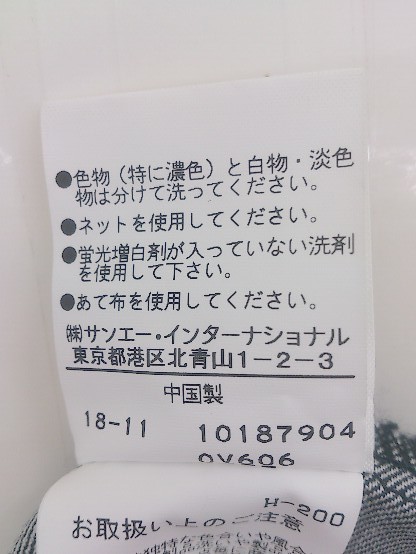 ●色物（特に濃色）と白物・淡色
物は分けて洗ってください。
●ネットを使用してください。
●蛍光増白剤が入っていない洗剤
を使用して下さい。
●あて布を使用してください。
㈱サンエー・インターナショナル
東京都港区北青山1-2-3
中国製
18-11 10187904
0V606
H-200
お取扱い上のご注意